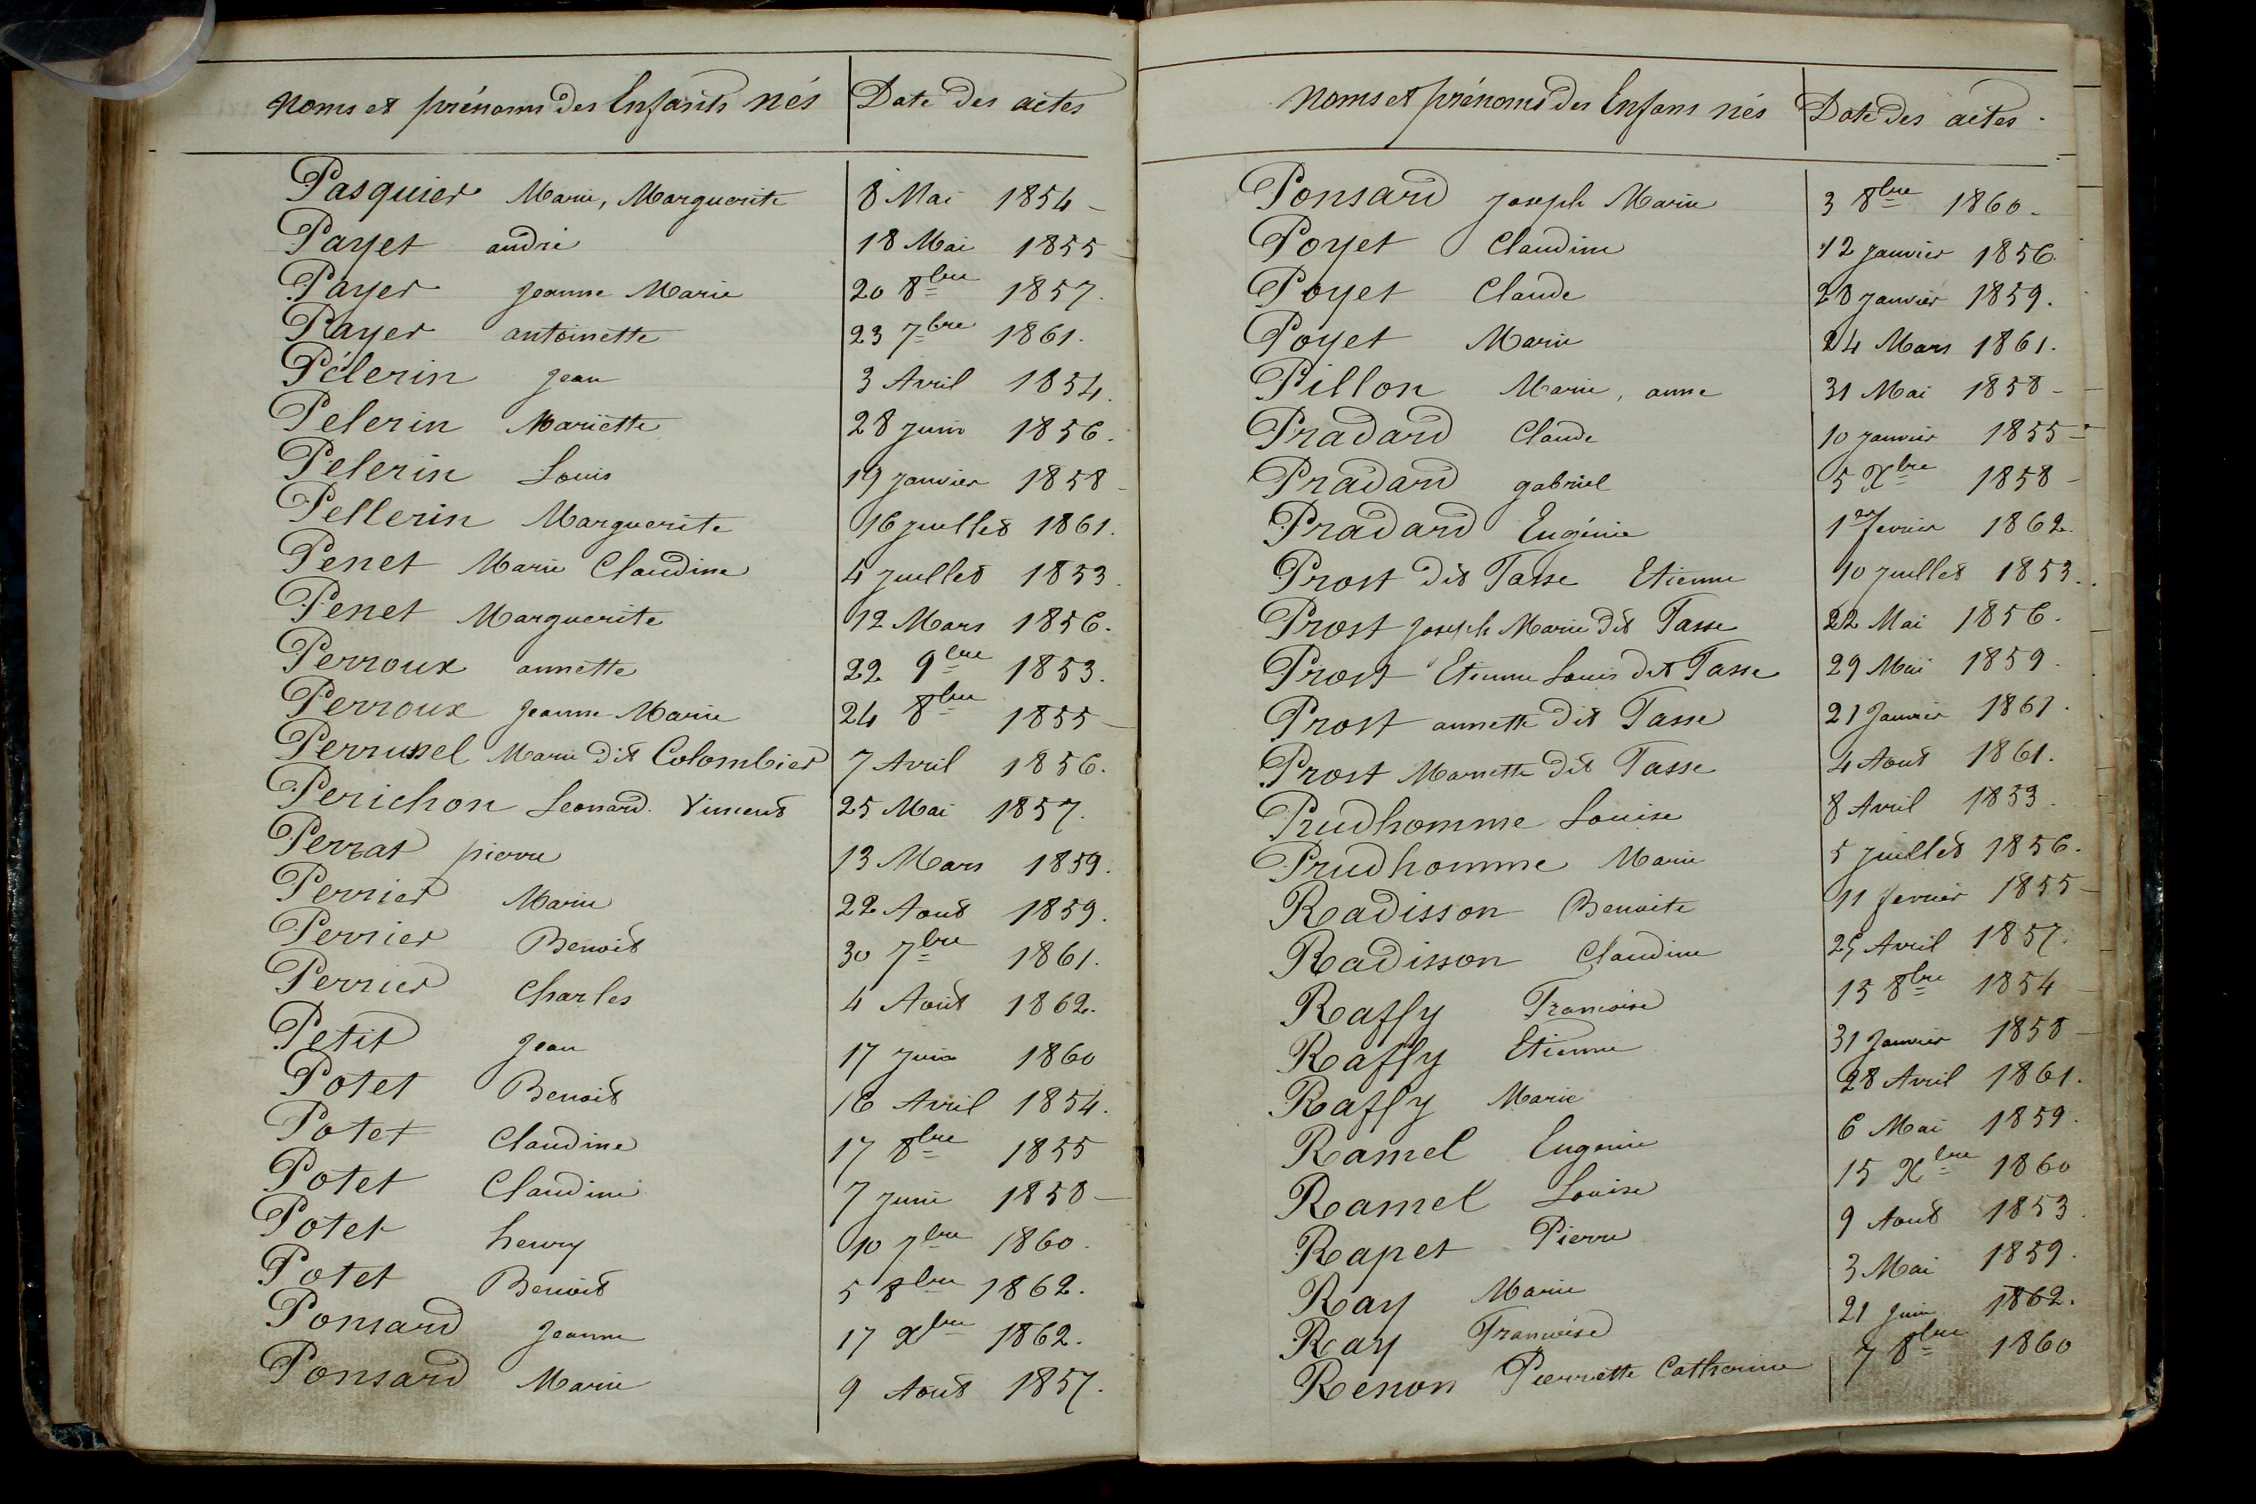 Noms et prénoms des Enfants nés Date des actes
Pasquier Marie, Marguerite 8 Mai 1854 -
Payet andré 18 Mai 1855
Payer Jeanne Marie 20 8bre 1857.
Payer antoinette 23 7bre 1861.
Pélerin Jean 3 Avril 1854.
Pelerin Mariette 28 juin 1856.
Pelerin Louis 19 janvier 1858 -
Pellerin Marguerite 16 juillet 1861.
Penet Marie Claudine 4 juillet 1853.
Penet Marguerite 12 Mars 1856.
Perroux annette 22 9bre 1853.
Perroux Jeanne Marie 24 8bre 1855 -
Perrussel Marie dit Colombier 7 Avril 1856.
Perichon Leonard. Vincent 25 Mai 1857.
Perrat pierre 13 Mars 1859.
Perrier Marie 22 Aout 1859.
Perrier Benoit 30 7bre 1861.
Perrier Charles 4 Aout 1862.
Petit Jean 17 juin 1860
Potet Benoit 16 Avril 1854.
Potet Claudine 17 8bre 1855
Potet Claudine 7 juin 1858 -
Potet henry 10 7bre 1860.
Potet Benoit 5 8bre 1862.
Ponsard Jeanne 17 Xbre 1862.
Ponsard Marie 9 Aout 1857.
Noms et prénoms des Enfans nés Date des actes.
Ponsard Joseph Marie 3 8bre 1860.
Poyet Claudine 12 janvier 1856.
Poyet Claude 28 janvier 1859.
Poyet Marie 24 Mars 1861.
Pillon Marie, anne 31 Mai 1858 -
Pradard Claude 10 janvier 1855 -
Pradard gabriel 5 Xbre 1858 -
Pradard Eugénie 1er fevrier 1862.
Prost dit Tasse Etienne 10 juillet 1853.
Prost Joseph Marie dit Tasse 22 Mai 1856.
Prost Etienne Louis dit Tasse 29 Mai 1859.
Prost annette dit Tasse 21 Janvier 1861.
Prost Mariette dit Tasse 4 Aout 1861.
Prudhomme Louise 8 Avril 1853.
Prudhomme Marie 5 juillet 1856.
Radisson Benoite 11 fevrier 1855 -
Radisson Claudine 25 Avril 1857.
Raffy Francoise 15 8bre 1854 -
Raffy Etienne 31 Janvier 1858 -
Raffy Marie 28 Avril 1861.
Ramel Eugenie 6 Mai 1859.
Ramel Louise 15 Xbre 1860
Rapet Pierre 9 Aout 1853.
Ray Marie 3 Mai 1859.
Ray Francoise 21 Juin 1862.
Renon Pierrette Catherine 7 8bre 1860